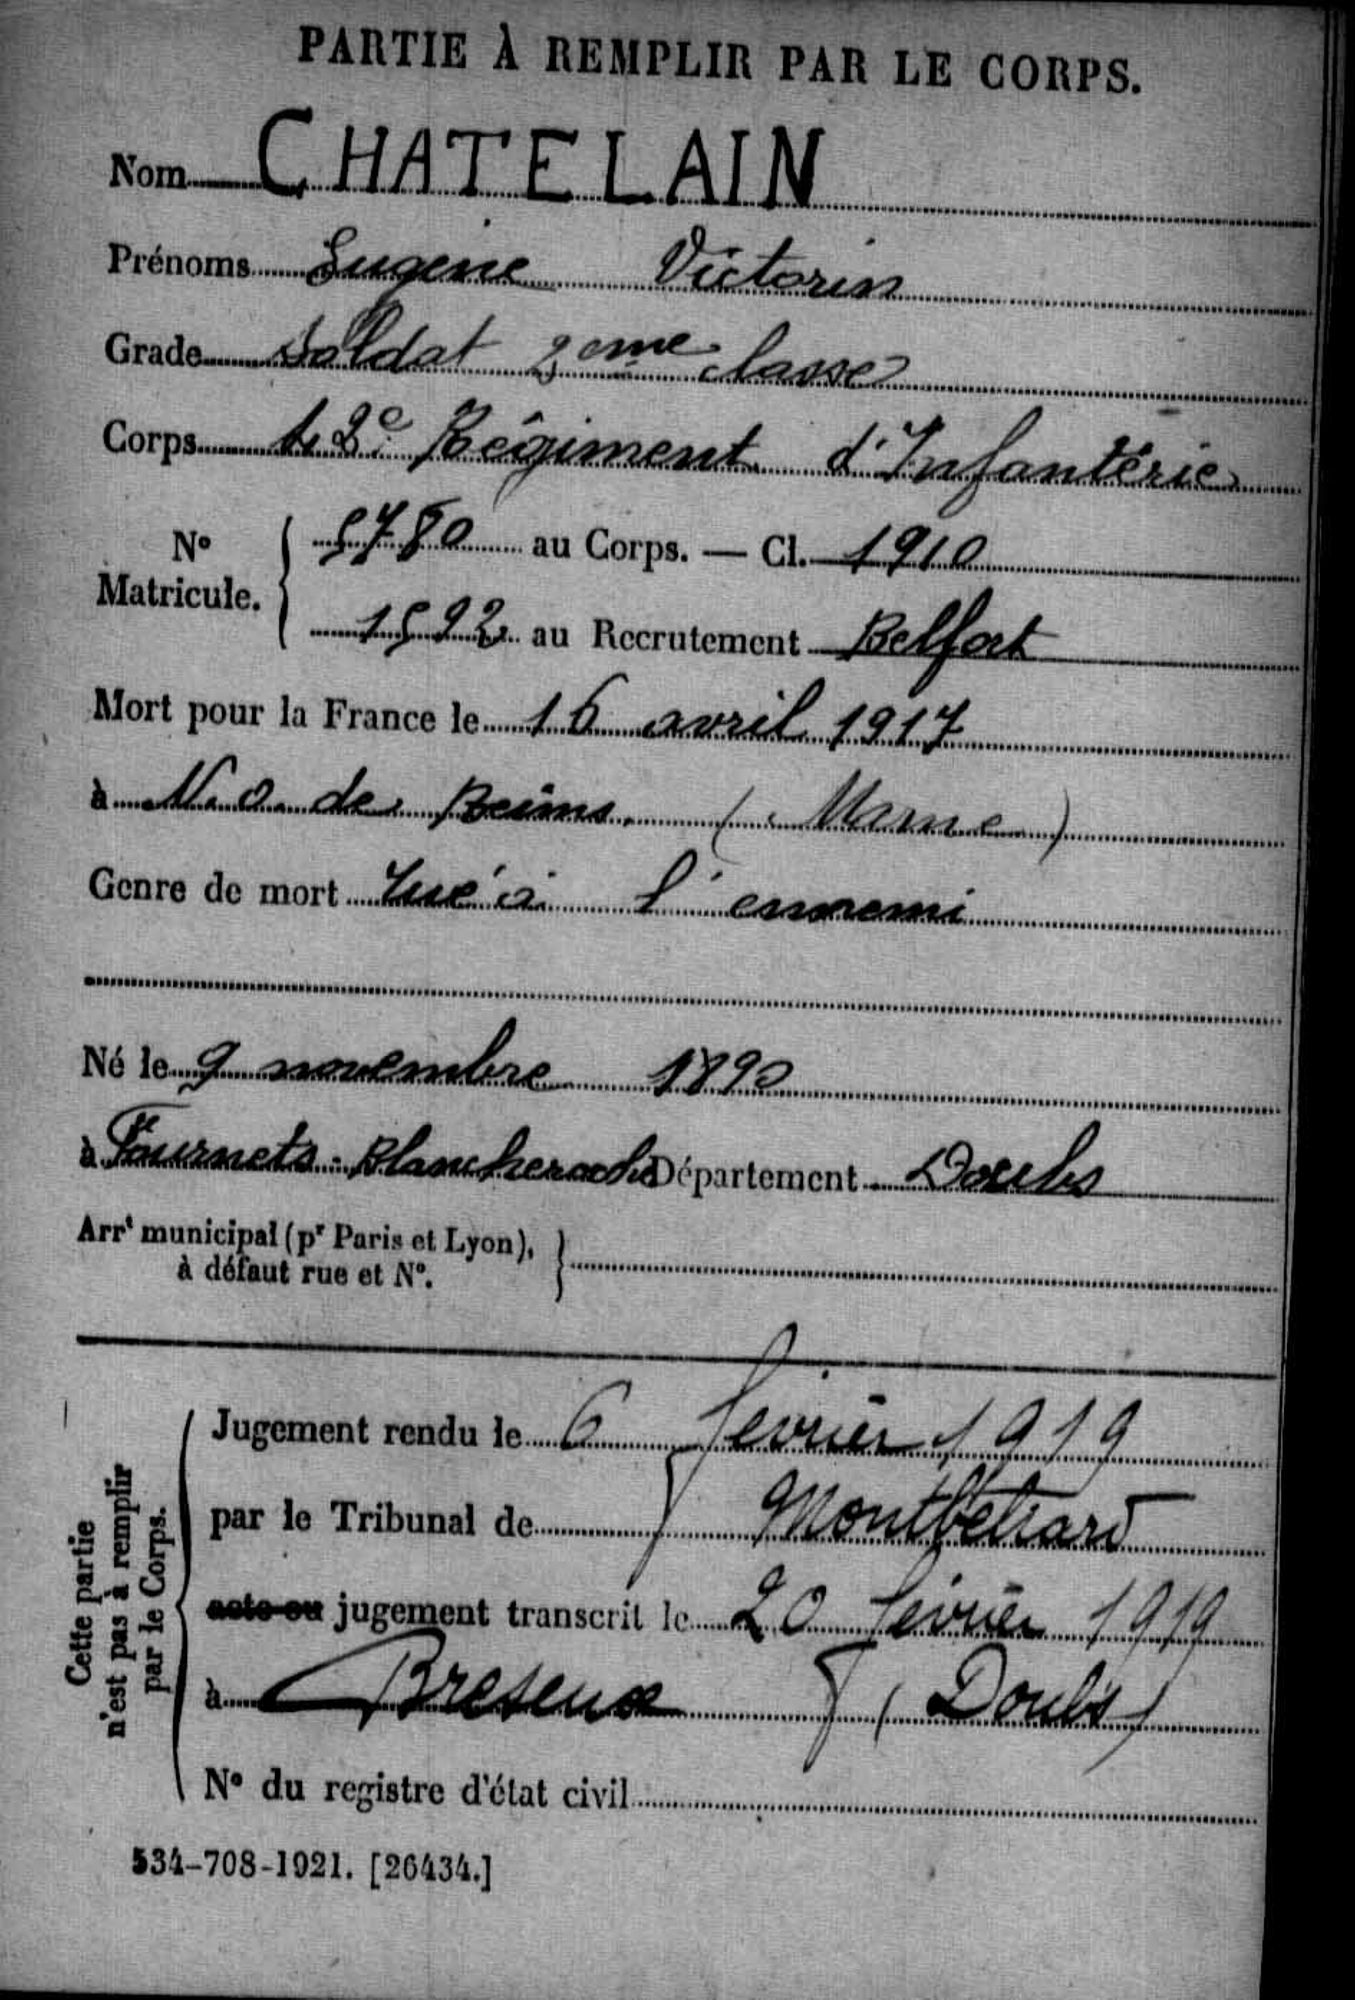 PARTIE À REMPLIR PAR LE CORPS.
Nom CHATELAIN
Prénoms Eugène Victorin
Grade Soldat 2eme classe
Corps 42e Régiment d'Infantérie
N° Matricule. 5780 au Corps. — Cl. 1910
1592 au Recrutement Belfort
Mort pour la France le 16 avril 1917
à N. O. de Reims (Marne)
Genre de mort tué à l'ennemi
Né le 9 novembre 1890
à Fournets-Blancheroche Département Doubs
Arrt municipal (pr Paris et Lyon),
à défaut rue et N°.
Cette partie
n'est pas à remplir
par le Corps.
Jugement rendu le 6 février 1919
par le Tribunal de Montbéliard
acte ou jugement transcrit le 20 février 1919
à Breseux (Doubs)
N° du registre d'état civil
534-708-1921. [26434.]